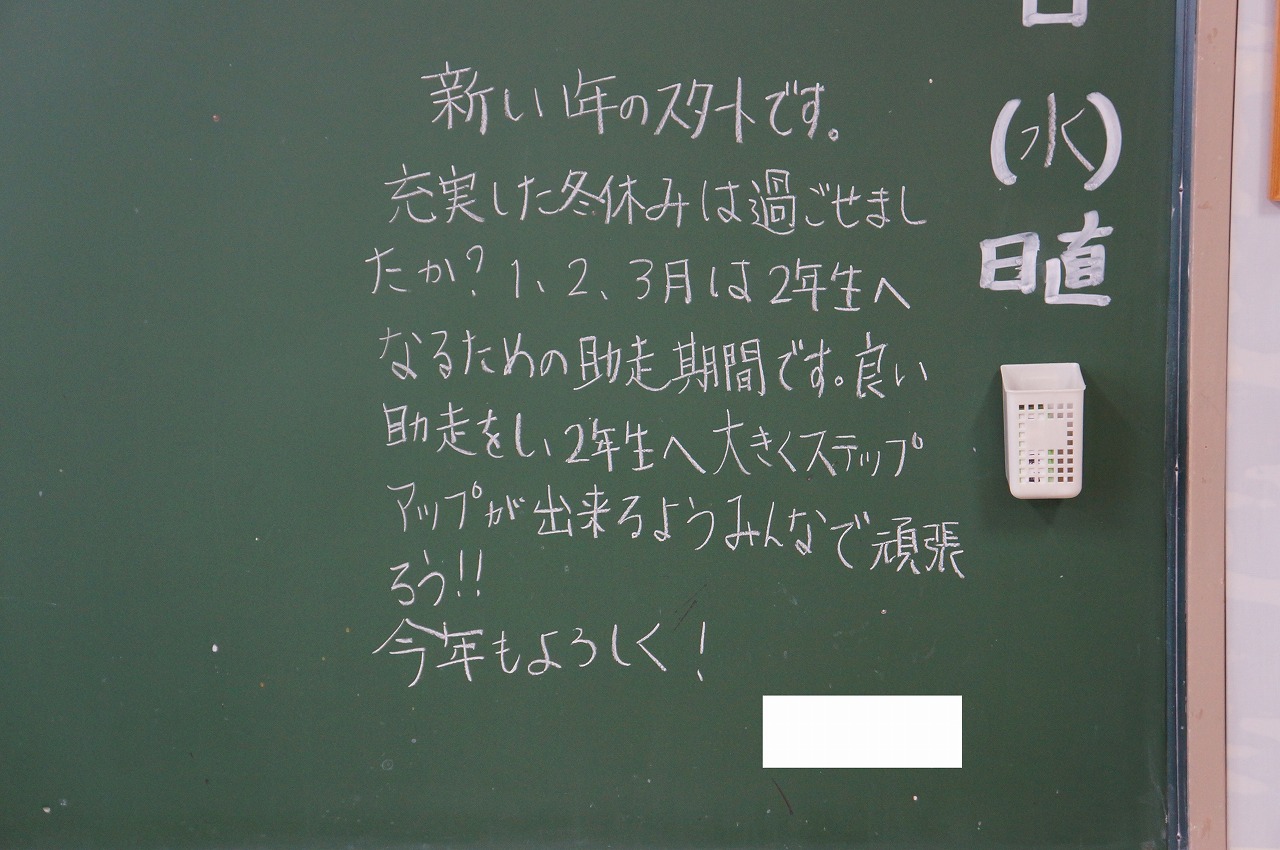 新しい年のスタートです。
充実した冬休みは過ごせまし
たか？1、2、3月は2年生へ
なるための助走期間です。良い
助走をし、2年生へ大きくステップ
アップが出来るようみんなで頑張
ろう!!
今年もよろしく!
日
(水)
日直